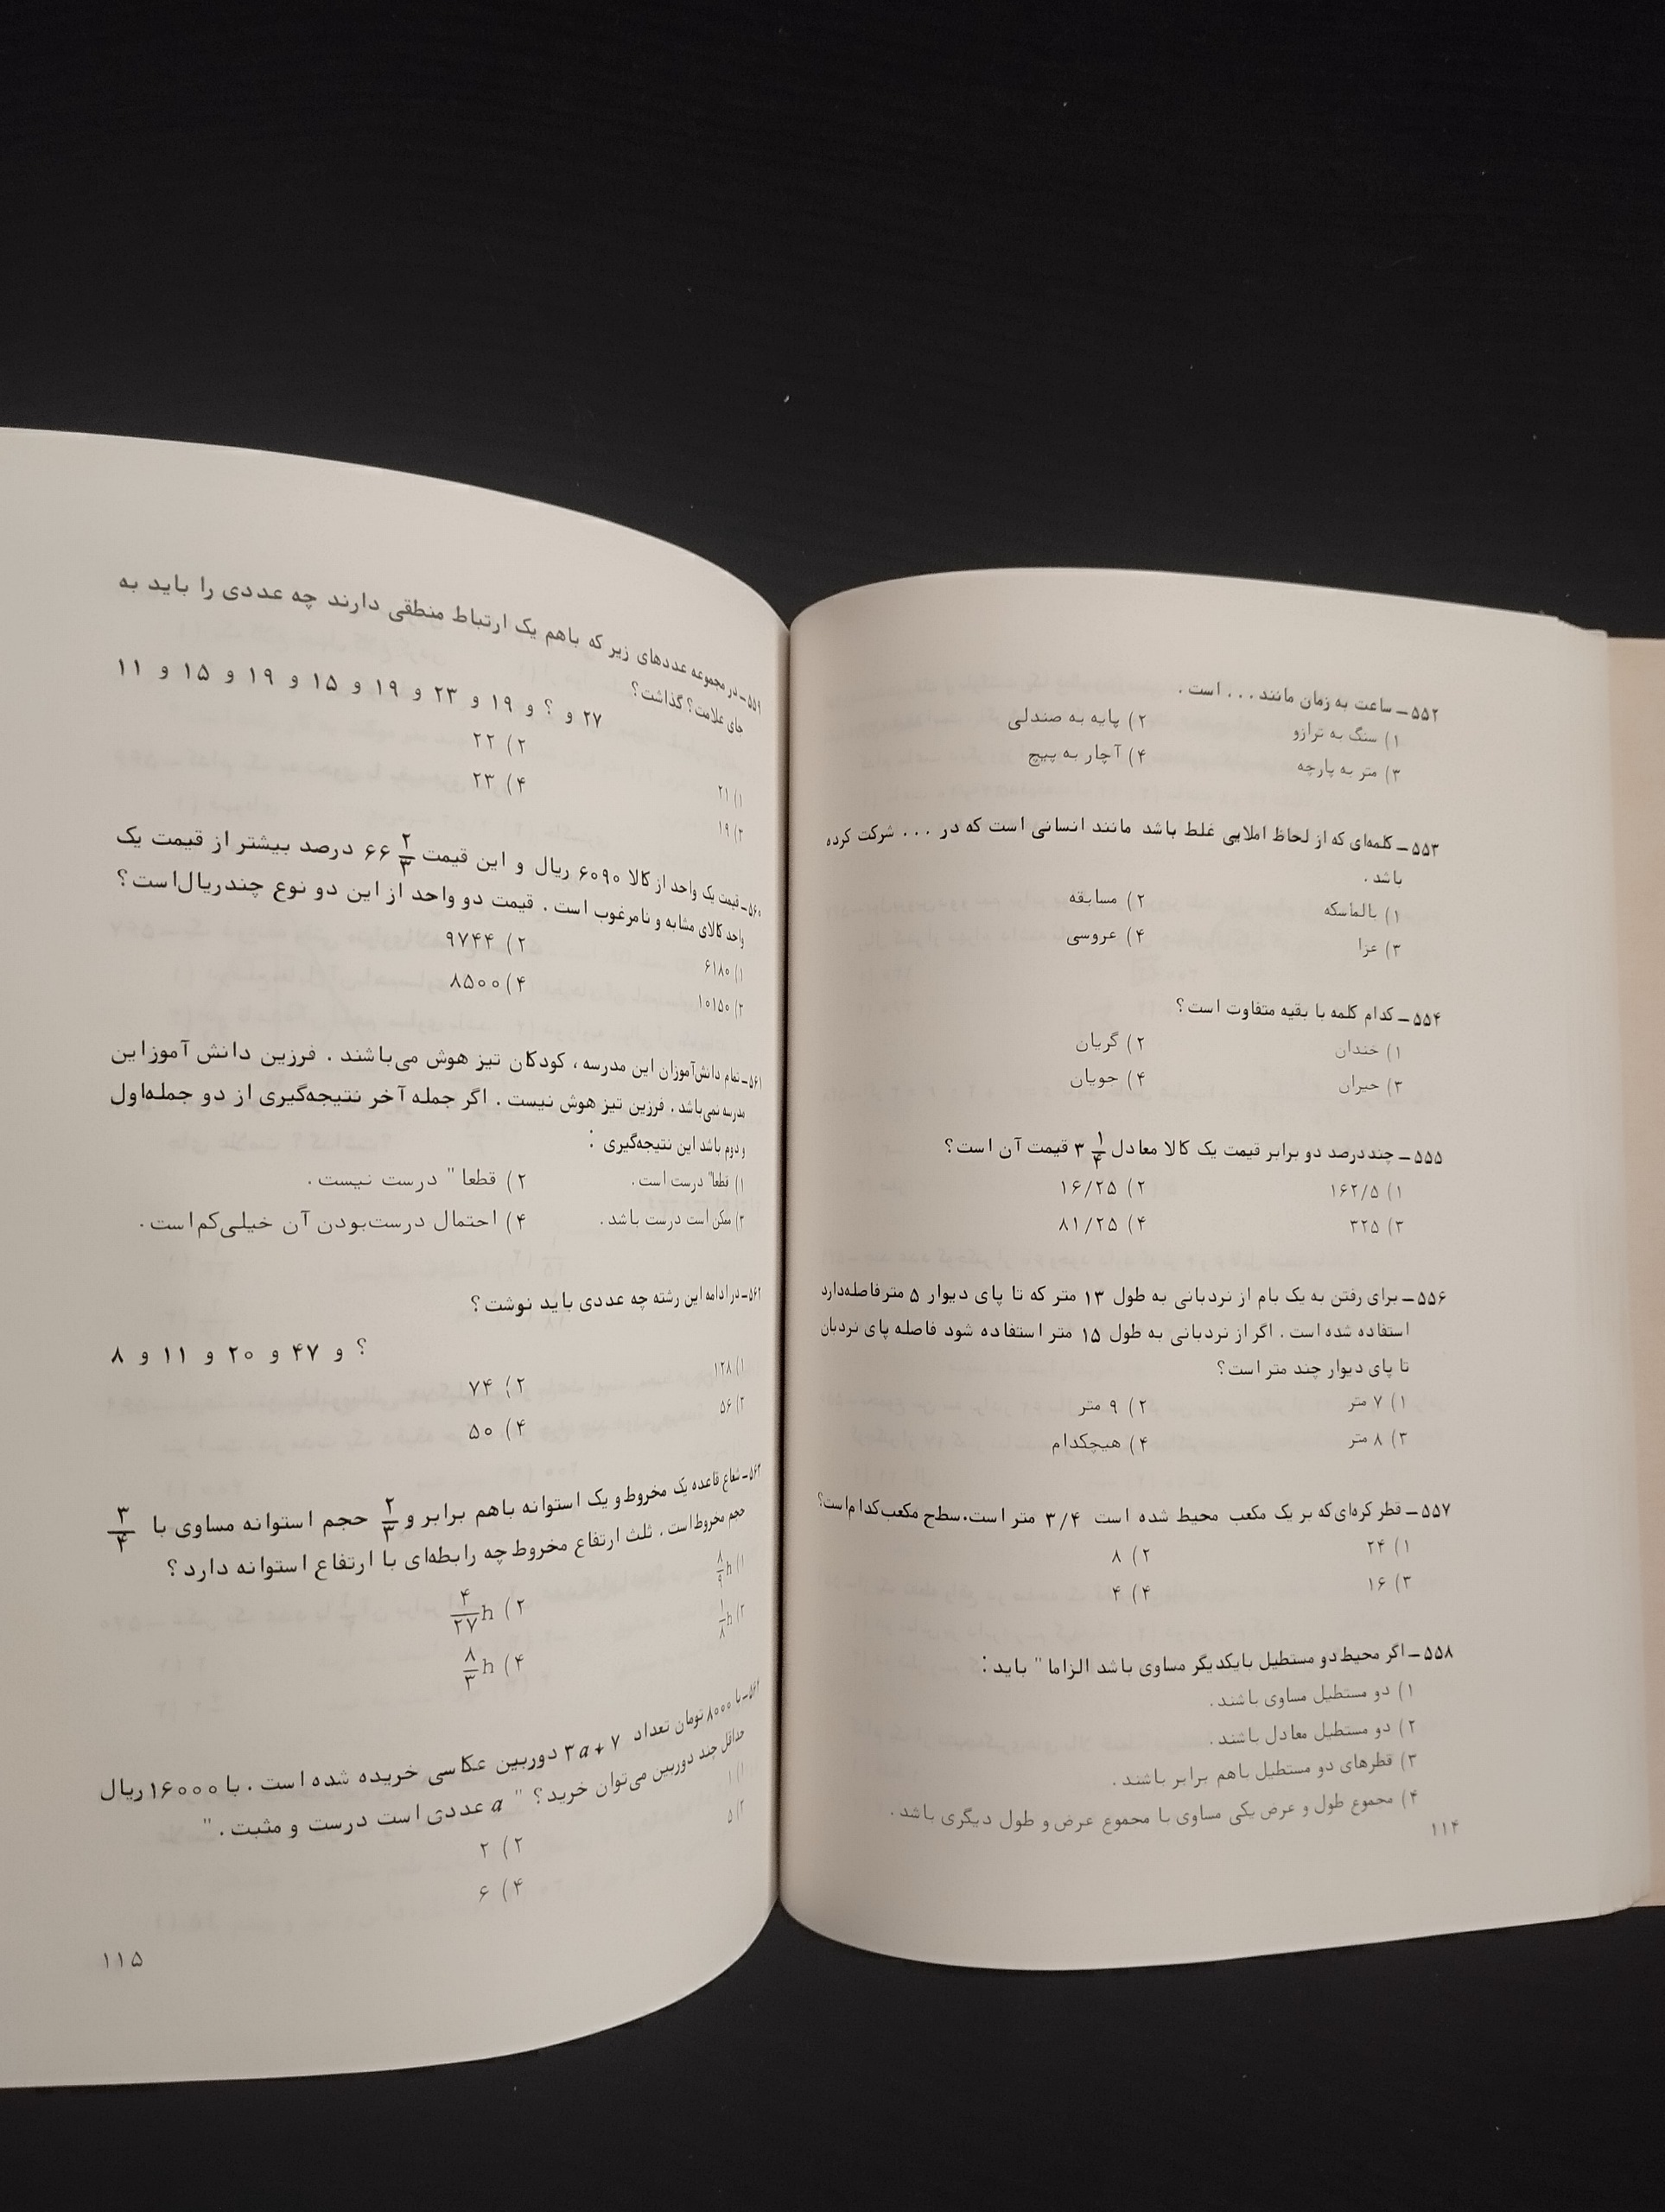 ۵۵۲ــ ساعت به زمان مانند . . . است .
۱) سنگ به ترازو ۲) پایه به صندلی
۳) متر به پارچه ۴) آچار به پیچ
۵۵۳ــ کلمه‌ای که از لحاظ املایی غلط باشد مانند انسانی است که در . . . شرکت کرده
باشد .
۱) بالماسکه ۲) مسابقه
۳) عزا ۴) عروسی
۵۵۴ــ کدام کلمه با بقیه متفاوت است؟
۱) خندان ۲) گریان
۳) حیران ۴) جویان
۵۵۵ــ چند درصد دو برابر قیمت یک کالا معادل ۳ ۱/۴ قیمت آن است؟
۱) ۱۶۲/۵ ۲) ۱۶/۲۵
۳) ۳۲۵ ۴) ۸۱/۲۵
۵۵۶ــ برای رفتن به یک بام از نردبانی به طول ۱۳ متر که تا پای دیوار ۵ متر فاصله‌دارد
استفاده شده است . اگر از نردبانی به طول ۱۵ متر استفاده شود فاصله پای نردبان
تا پای دیوار چند متر است؟
۱) ۷ متر ۲) ۹ متر
۳) ۸ متر ۴) هیچکدام
۵۵۷ــ قطر کره‌ای که بر یک مکعب محیط شده است ۳/۴ متر است. سطح مکعب کدام است؟
۱) ۲۴ ۲) ۸
۳) ۱۶ ۴) ۴
۵۵۸ــ اگر محیط دو مستطیل بایکدیگر مساوی باشد الزاما" باید :
۱) دو مستطیل مساوی باشند .
۲) دو مستطیل معادل باشند .
۳) قطرهای دو مستطیل باهم برابر باشند .
۴) مجموع طول و عرض یکی مساوی با مجموع عرض و طول دیگری باشد .
۱۱۴
۵۵۹ــ در مجموعه عددهای زیر که باهم یک ارتباط منطقی دارند چه عددی را باید به
جای علامت؟ گذاشت؟
۲۷ و ؟ و ۱۹ و ۲۳ و ۱۹ و ۱۵ و ۱۹ و ۱۵ و ۱۱
۱) ۲۱ ۲) ۲۲
۳) ۱۹ ۴) ۲۳
۵۶۰ــ قیمت یک واحد از کالا ۶۰۹۰ ریال و این قیمت ۶۶ ۲/۳ درصد بیشتر از قیمت یک
واحد کالای مشابه و نامرغوب است . قیمت دو واحد از این دو نوع چندریال‌است؟
۱) ۶۱۸۰ ۲) ۹۷۴۴
۳) ۱۰۱۵۰ ۴) ۸۵۰۰
۵۶۱ــ تمام دانش‌آموزان این مدرسه ، کودکان تیز هوش می‌باشند . فرزین دانش آموزاین
مدرسه نمی‌باشد . فرزین تیز هوش نیست . اگر جمله آخر نتیجه‌گیری از دو جمله‌اول
و دوم باشد این نتیجه‌گیری :
۱) قطعا" درست است . ۲) قطعا" درست نیست .
۳) ممکن است درست باشد . ۴) احتمال درست‌بودن آن خیلی‌کم‌است .
۵۶۲ــ در ادامه این رشته چه عددی باید نوشت؟
؟ و ۴۷ و ۲۰ و ۱۱ و ۸
۱) ۱۲۸ ۲) ۷۴
۳) ۵۶ ۴) ۵۰
۵۶۳ــ شعاع قاعده یک مخروط و یک استوانه باهم برابر و ۲/۳ حجم استوانه مساوی با ۳/۴
حجم مخروط‌است . ثلث ارتفاع مخروط چه رابطه‌ای با ارتفاع استوانه دارد؟
۱) ۸/۹ h ۲) ۴/۲۷ h
۳) ۱/۸ h ۴) ۸/۳ h
۵۶۴ــ با ۸۰۰۰ تومان تعداد ۳a+۷ دوربین عکاسی خریده شده است . با ۱۶۰۰۰ ریال
حداقل چند دوربین می‌توان خرید؟ " a عددی است درست و مثبت . "
۱) ۱ ۲) ۲
۳) ۵ ۴) ۶
۱۱۵